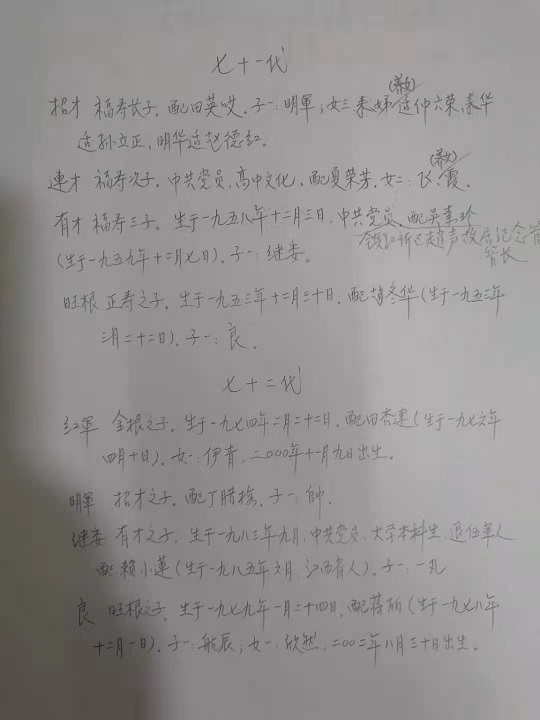 七十一代
(养女)
招才 福寿长子. 配田英 子一:明軍; 女三:来娣适仲六荣,素华
适孙立正,明华适赵德红.
(养女)
連才 福寿次子. 中共党员,高中文化,配夏荣芳. 女二:飞、霞.
有才 福寿三子. 生于一九五八年十二月三日,中共党员,配吴素珍
(生于一九五九年十二月七日). 子一:继委.
馆长
旺根 正寿之子. 生于一九五三年十二月三十日. 配赵冬华(生于一九五三年
三月二十二日). 子一:良.
七十二代
红軍 全根之子. 生于一九七四年二月二十二日. 配田杏連(生于一九七六年
四月十日). 女一:伊青,二000年十一月九日出生.
明軍 招才之子. 配丁腊梅. 子一:帅.
继委 有才之子. 生于一九八三年九月,中共党员,大学本科生,退伍軍人
配赖小蓮(生于一九八五年六月,江西省人). 子一:一丸
良 旺根之子. 生于一九七九年一月二十四日. 配蒋所(生于一九七八年
十二月一日). 子一:航辰; 女一:欣然,二00二年八月三十日出生.